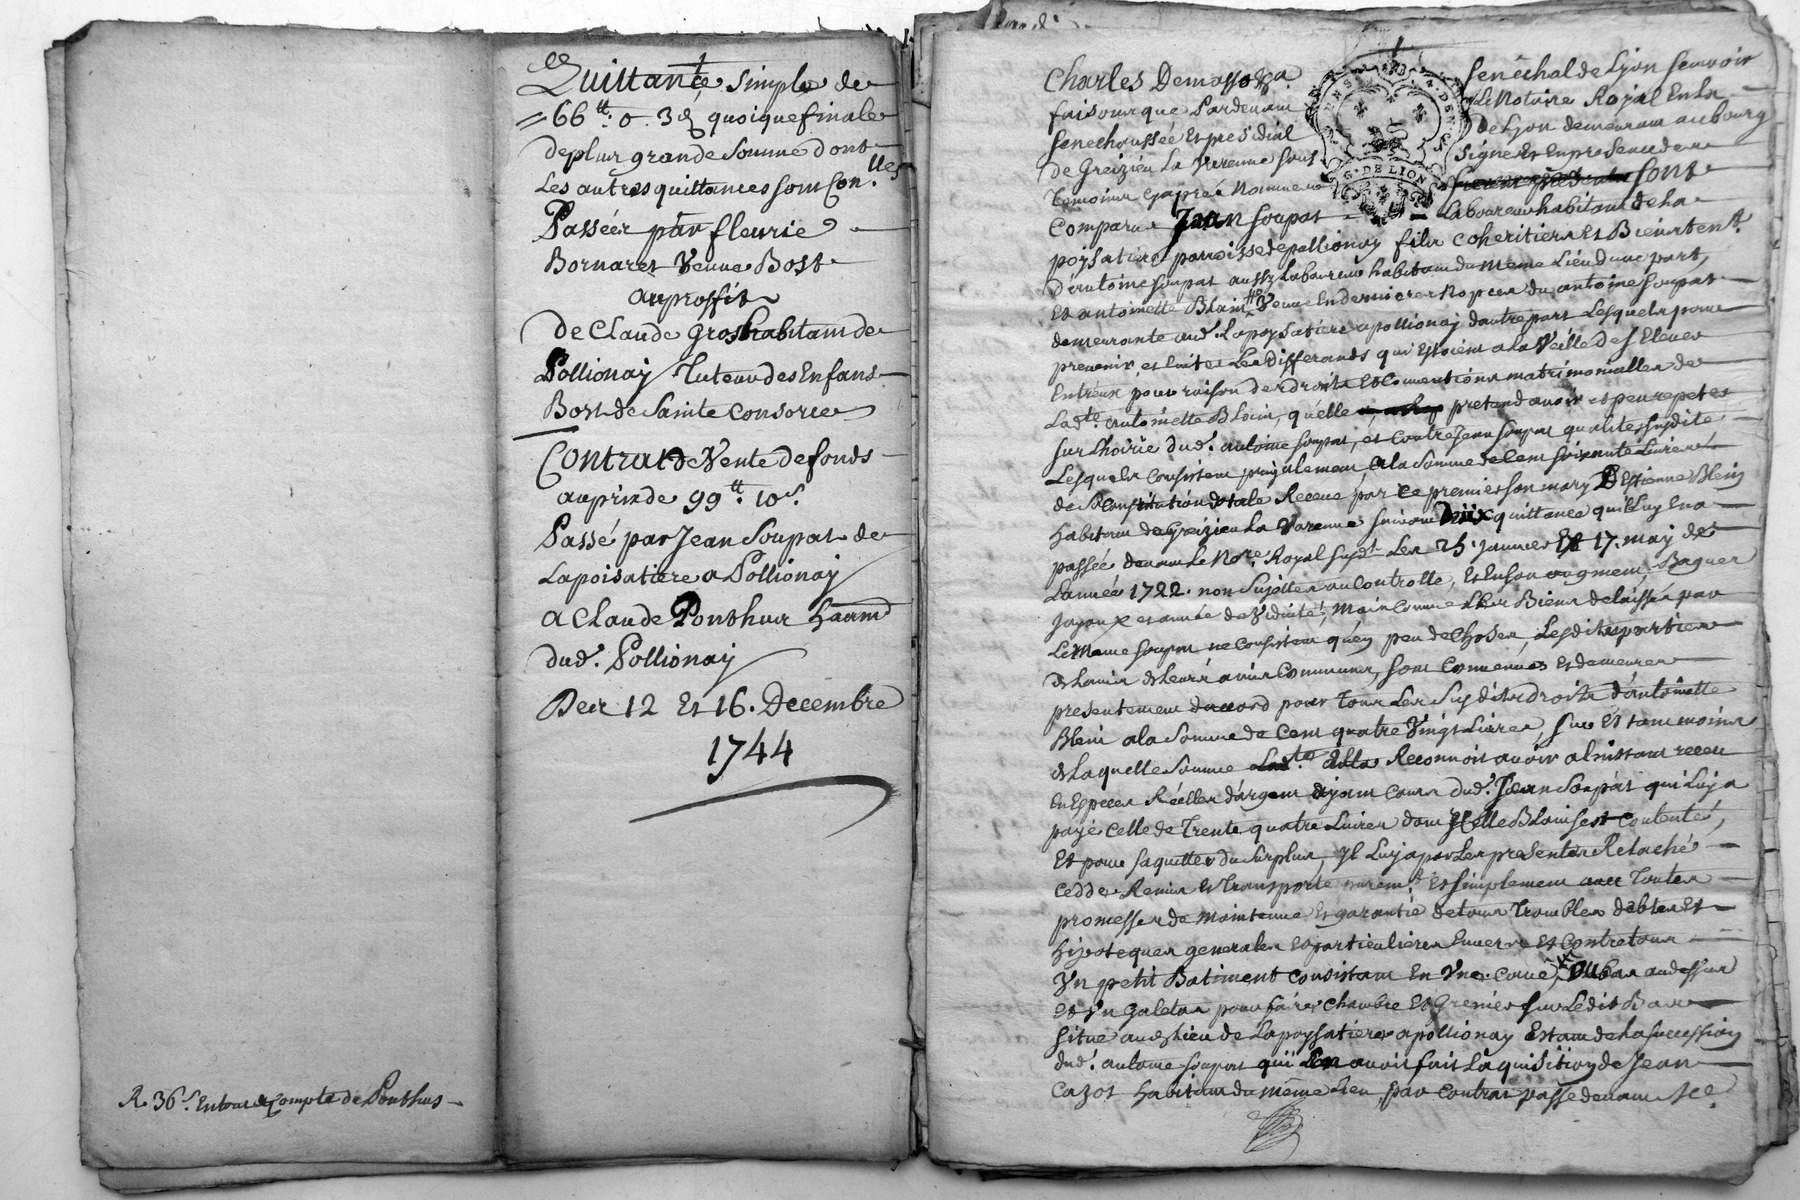 Quittance simple de
66tt. 0. 3d quoique finale
de plus grande somme dont
les autres quittances sont Con.lles
Passées par fleurie
Bornaret Veuve Bost
au proffit
de Claude Gros habitant de
Pollionay Tuteur des Enfans
Bost de Sainte Consorce
Contrat de Vente de fonds
au prix de 99tt. 10s.
Passé par Jean Soupat de
Lapoisatiere a Pollionay
a Claude Ponthus
dud. Pollionay
Des 12 Et 16. Decembre
1744
R. 36s. Compte de Ponthus
Charles Demasso senéchal de Lyon scavoir
faisons que Pardevant Le Notaire Royal En la
senechaussée Et presidial de Lyon demeurant au bourg
de Greizieu La Varenne sous signé Et En presence des
Temoins Nommes sont
Comparus Jean Soupat Laboureur habitant de La
poysatiere parroisse de pollionay fils coheritier Et Bientent.
d'antoine soupat aussy Laboureur habitant du meme Lieu d'une part,
Et antoinette Blain Veuve En dernieres Nopces du antoine soupat
demeurante aud. Lapoysatiere a pollionay d'autre part Lesquels pour
prevenir et Eviter Les differands qui Estoient a la Veille de s'Elever
Entr'eux pour raison des droits Et Conventions matrimonialles de
Ladte. antoinette Blain, qu'elle pretend avoir et peu repeter
sur L'hoirie dud. antoine soupat, et Contre Jean soupat qualité susdite
Lesquels Consistent a la somme de Cent soixante Livres
de sa Constitution dotale Receue par ce premier son mary D'Estienne Blein
habitant de Greizieu La Varenne suivant Deux quittances qu'il Luy En a
passée devant Le Nore. Royal susdt. Les 25. Janvier Et 17. may de
L'année 1722. non sujettes au Controlle, Et En son augment, Bagues
Joyaux et année de Viduité, mais Comme Les Biens delaissés par
Le Meme soupat ne Consistent qu'en peu de choses, Lesdites parties
de Leurs avis Communs, sont Convenues Et demeurées
presentement d'accord pour Tous Les susdits droits d'antoinette
Blein a la somme de Cent quatre Vingt Livres, sur Et tant moins
de Laquelle somme Elle Reconnoit avoir a L'instant receu
En Especes Réelles d'argent ayant Cours dud. Jean Soupat qui Luy a
payé Celle de Trente quatre Livres dont Elle Blain se Contente,
Et pour s'aquitter du surplus, Il Luy a par Les presentes Relaché
cedde Remis Et Transporté purem.t Et simplement avec Toutes
promesses de maintenue Et garantie de tous Troubles debtes Et
hipoteques generales Et particulieres Envers Et Contre tous
Un petit Batiment Consistant En Une cave, au dessus
Et Un Galetas pour faire Chambre Et Grenier sur Ledit Bas
situé aud. Lieu de Lapoysatiere a pollionay Estant de La succession
dud. antoine soupat qui En avoit fait L'aquisition de Jean
Cazot habitant du même Lieu, par Contrat passé devant Me
G. DE LYON